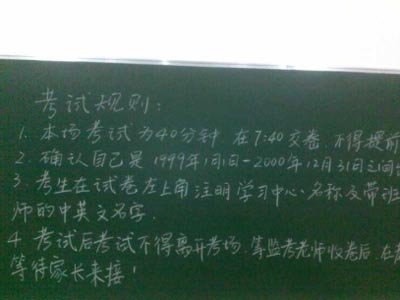 考试规则:
1. 本场考试为40分钟 在7:40交卷 不得提前
2. 确认自己是1999年1月1日-2000年12月31日之间
3. 考生在试卷左上角注明学习中心、名称及带班
师的中英文名字.
4 考试后考试不得离开考场. 等监考老师收卷后, 在
等待家长来接!